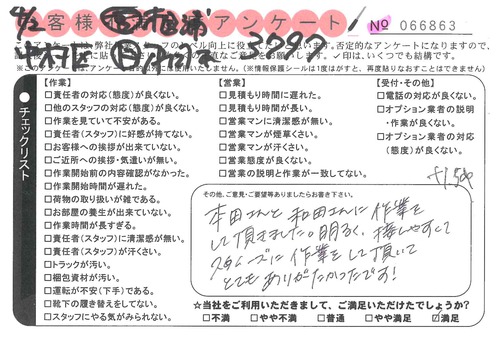 お客様アンケート
№ 066863
4/2
3097
このアンケートは、弊社
否定的なアンケートになりますので、
✓印は、いくつでも結構です。
※このアンケートは、アンケート目的以外に使用いたしません。(※情報保護シールは1度はがすと、再度貼りなおすことはできません)
チェックリスト
【作業】
□責任者の対応(態度)が良くない。
□他のスタッフの対応(態度)が良くない。
□作業を見ていて不安がある。
□責任者(スタッフ)に好感が持てない。
□お客様への挨拶が出来ていない。
□ご近所への挨拶・気遣いが無い。
□作業開始前の内容確認がなかった。
□作業開始時間が遅れた。
□荷物の取り扱いが雑である。
□お部屋の養生が出来ていない。
□作業時間が長すぎる。
□責任者(スタッフ)に清潔感が無い。
□責任者(スタッフ)が汗くさい。
□トラックが汚い。
□梱包資材が汚い。
□運転が不安(下手)である。
□靴下の履き替えをしてない。
□スタッフにやる気がみられない。
【営業】
□見積もり時間に遅れた。
□見積もり時間が長い。
□営業マンに清潔感が無い。
□営業マンが煙草くさい。
□営業マンが汗くさい。
□営業態度が良くない。
□営業の説明と作業が一致してない。
【受付・その他】
□電話の対応が良くない。
□オプション業者の説明
・作業が良くない。
□オプション業者の対応
(態度)が良くない。
その他、ご意見・ご要望等ありましたらお書き下さい。
本田さんと和田さんに作業を
して頂きました。明るく、接しやすくて
スムーズに作業をして頂いて
とてもありがたかったです!
☆当社をご利用いただきまして、ご満足いただけたでしょうか?
□不満 □やや不満 □普通 □やや満足 ☑満足